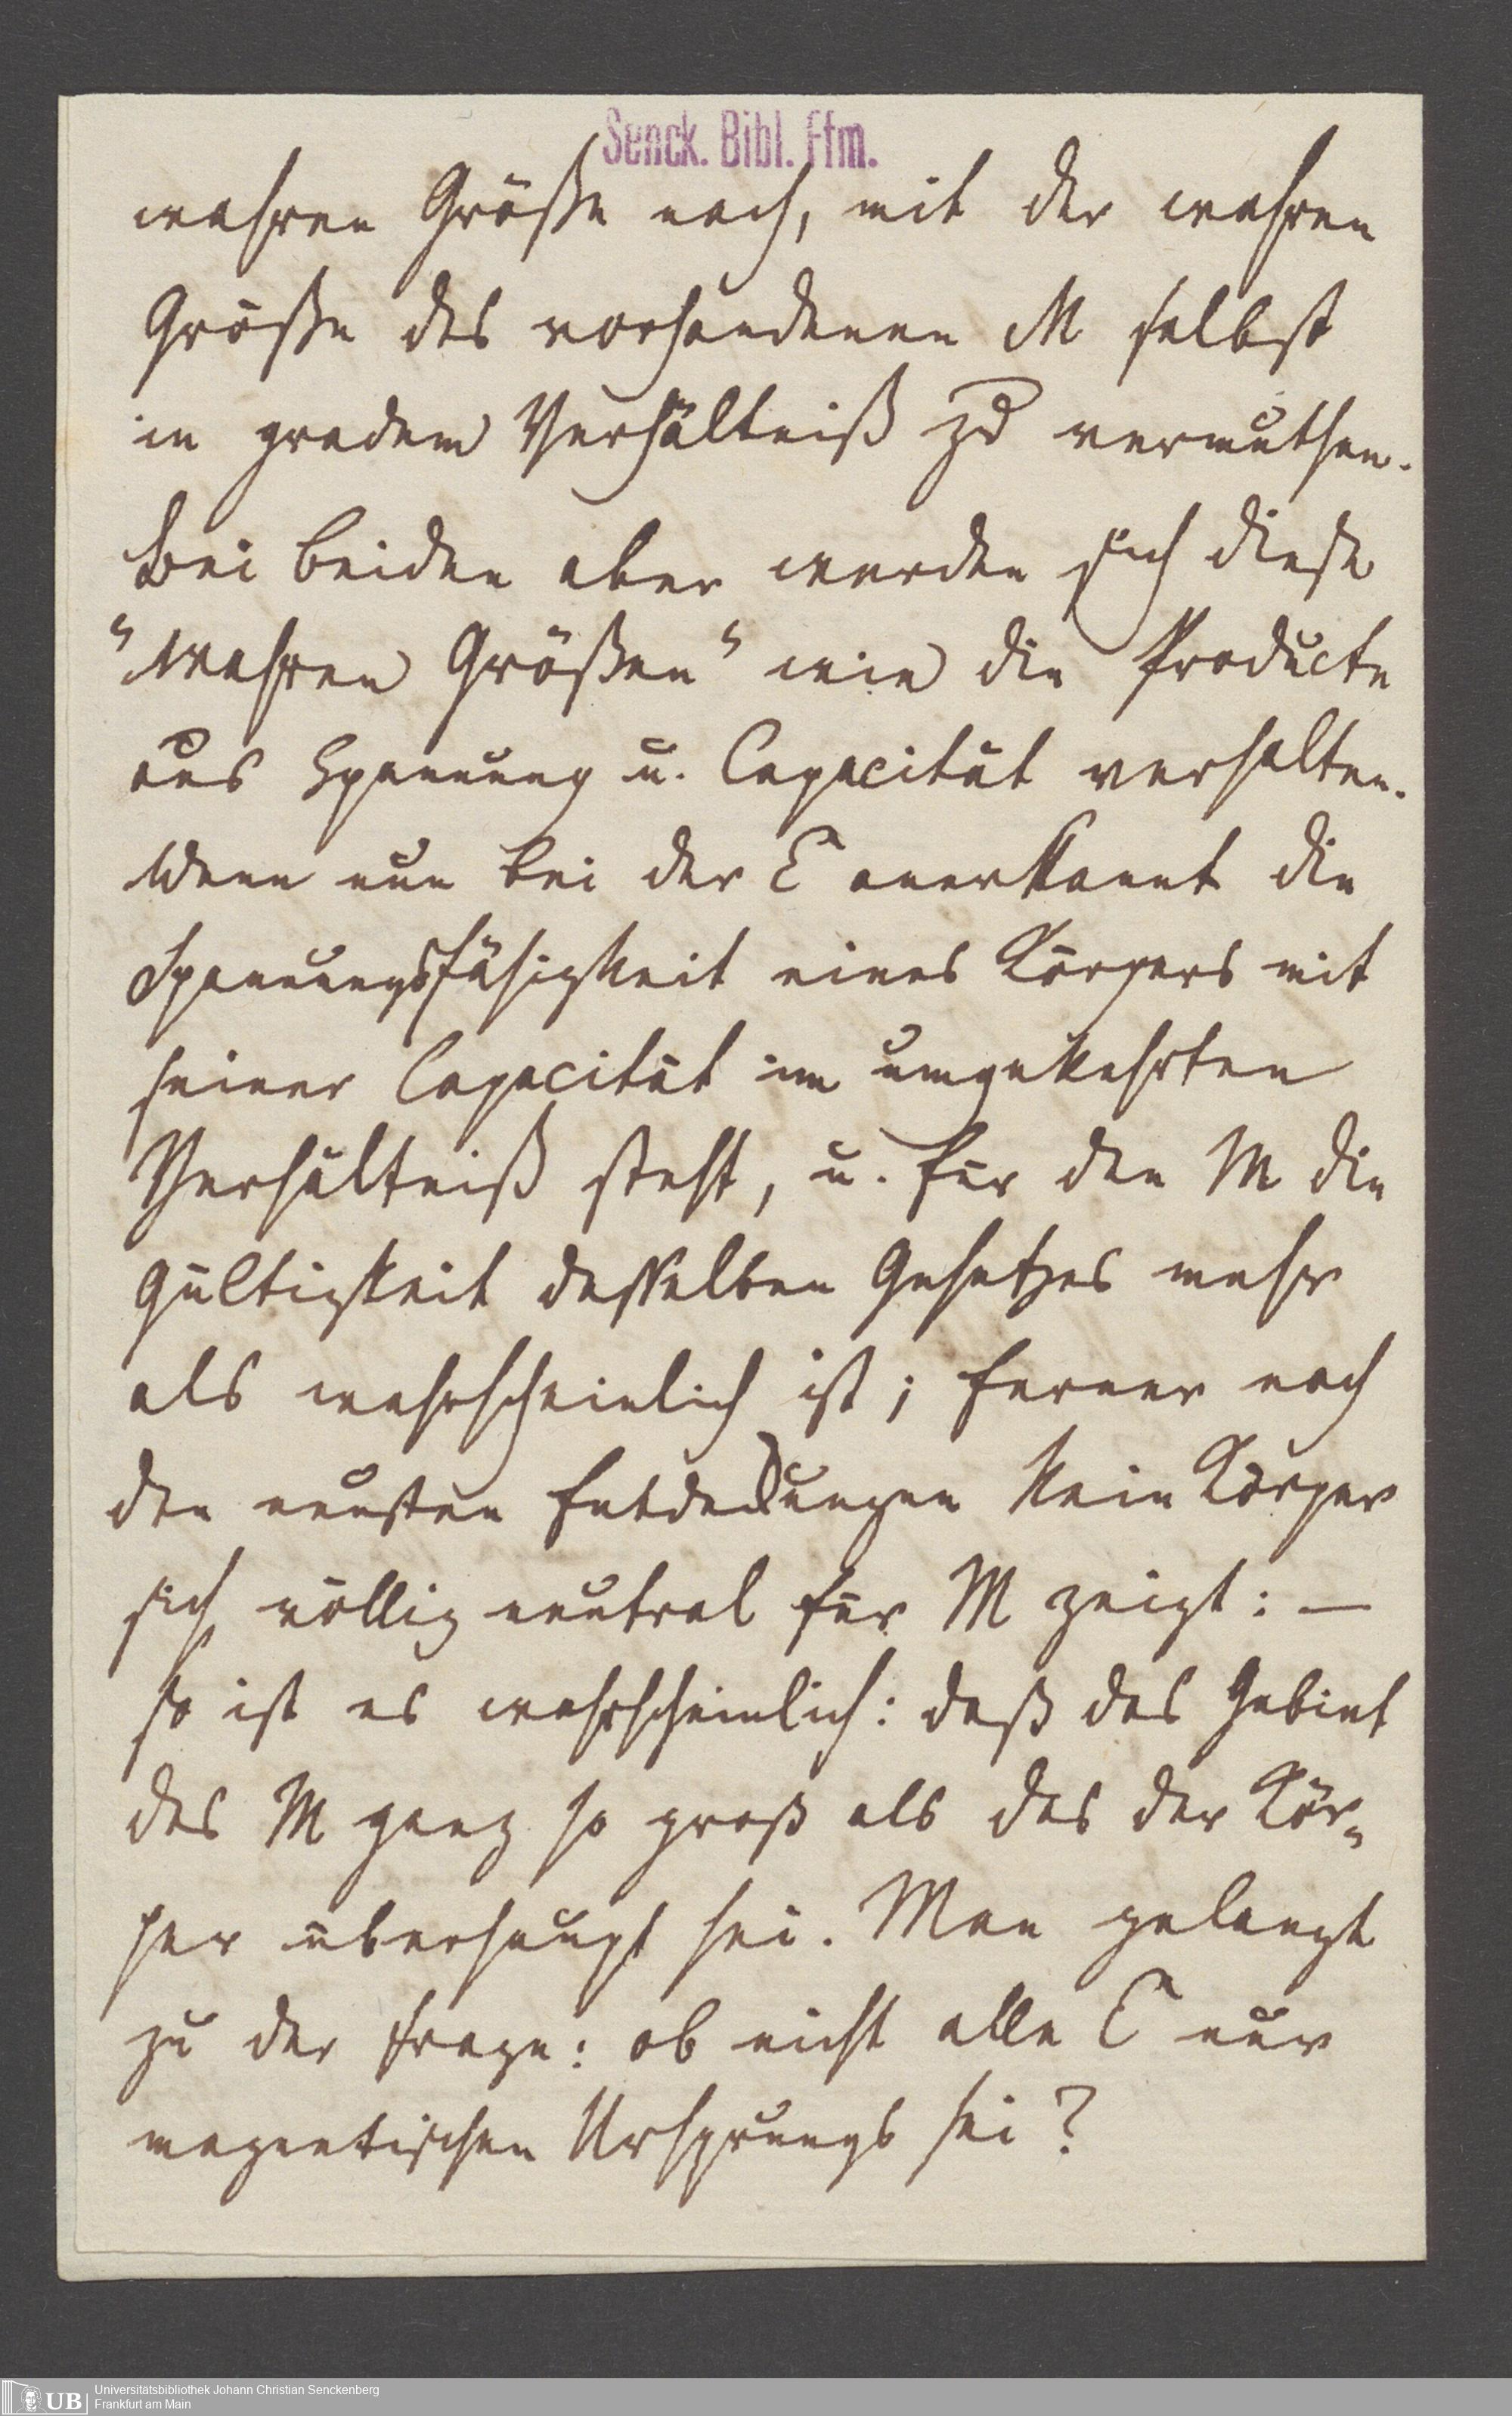 Senck. Bibl. Ffm.
wahren Größe nach, mit der wahren
Größe des vorhandenen M selbst
in gradem Verhältniß zu vermuthen.
Bei beiden aber werden sich diese
"wahren Größen" wie die Producte
aus Spannung u. Capacität verhalten.
Wenn nun bei der E anerkannt die
Spannungsfähigkeit eines Körpers mit
seiner Capacität im umgekehrten
Verhältniß steht, u. für den M die
Gültigkeit desselben Gesetzes mehr
als wahrscheinlich ist; ferner nach
den neusten Entdeckungen kein Körper
sich völlig neutral für M zeigt: —
so ist es wahrscheinlich: daß das Gebiet
des M ganz so groß als das der Kör-
per überhaupt sei. Man gelangt
zu der Frage: ob nicht alle E nur
magnetischen Ursprungs sei?
UB
Universitätsbibliothek Johann Christian Senckenberg
Frankfurt am Main